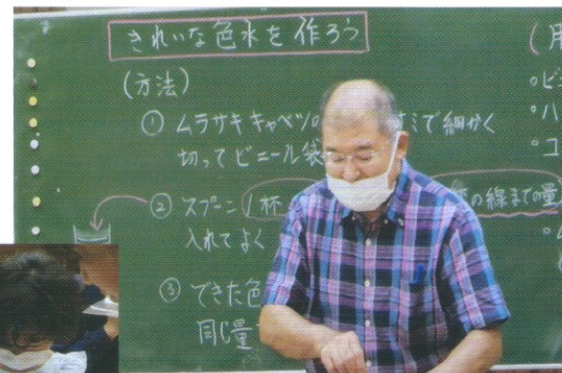 きれいな色水を作ろう
(方法)
① ムラサキキャベツの ミで細かく
切ってビニール袋
② スプーン1杯 の線までの量
入れてよく
③ できた色
同じ量
(用
・ビニ
・ハ
・コ